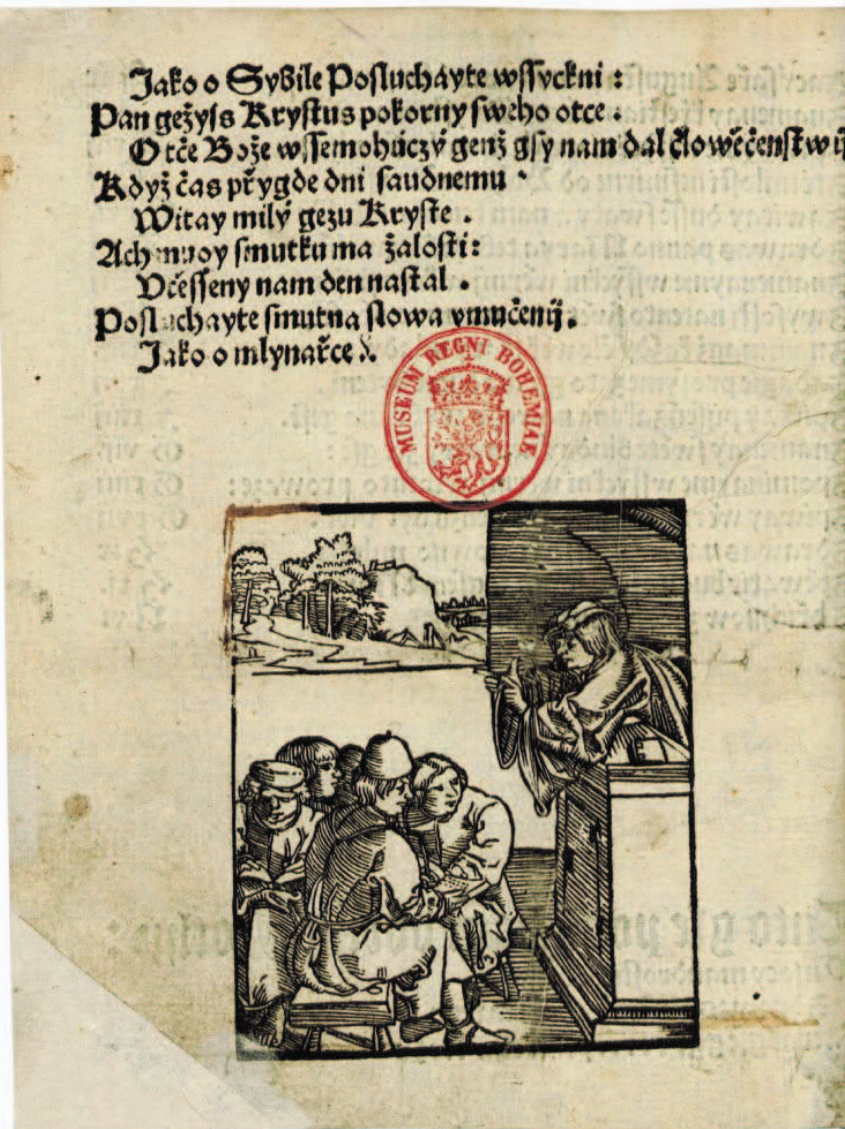 Jako o Sybile Posluchayte wssyckni :
Pan gežyss Krystus pokorny sweho otce .
O tče Bože wssemohúczý genž gsy nam dal člowěčenstwij
Když čas přygde dni saudnemu
Witay milý gezu Kryste .
Ach muoy smutku ma žalosti :
Včesseny nam den nastal .
Posluchayte smutna slowa vmučenij .
Jako o mlynařce
MUSEUM REGNI BOHEMIAE